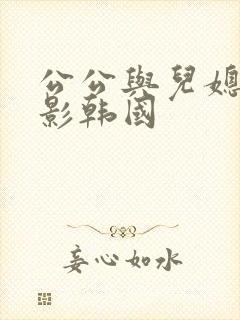 公公與兒媳
影韩國
妾心如水